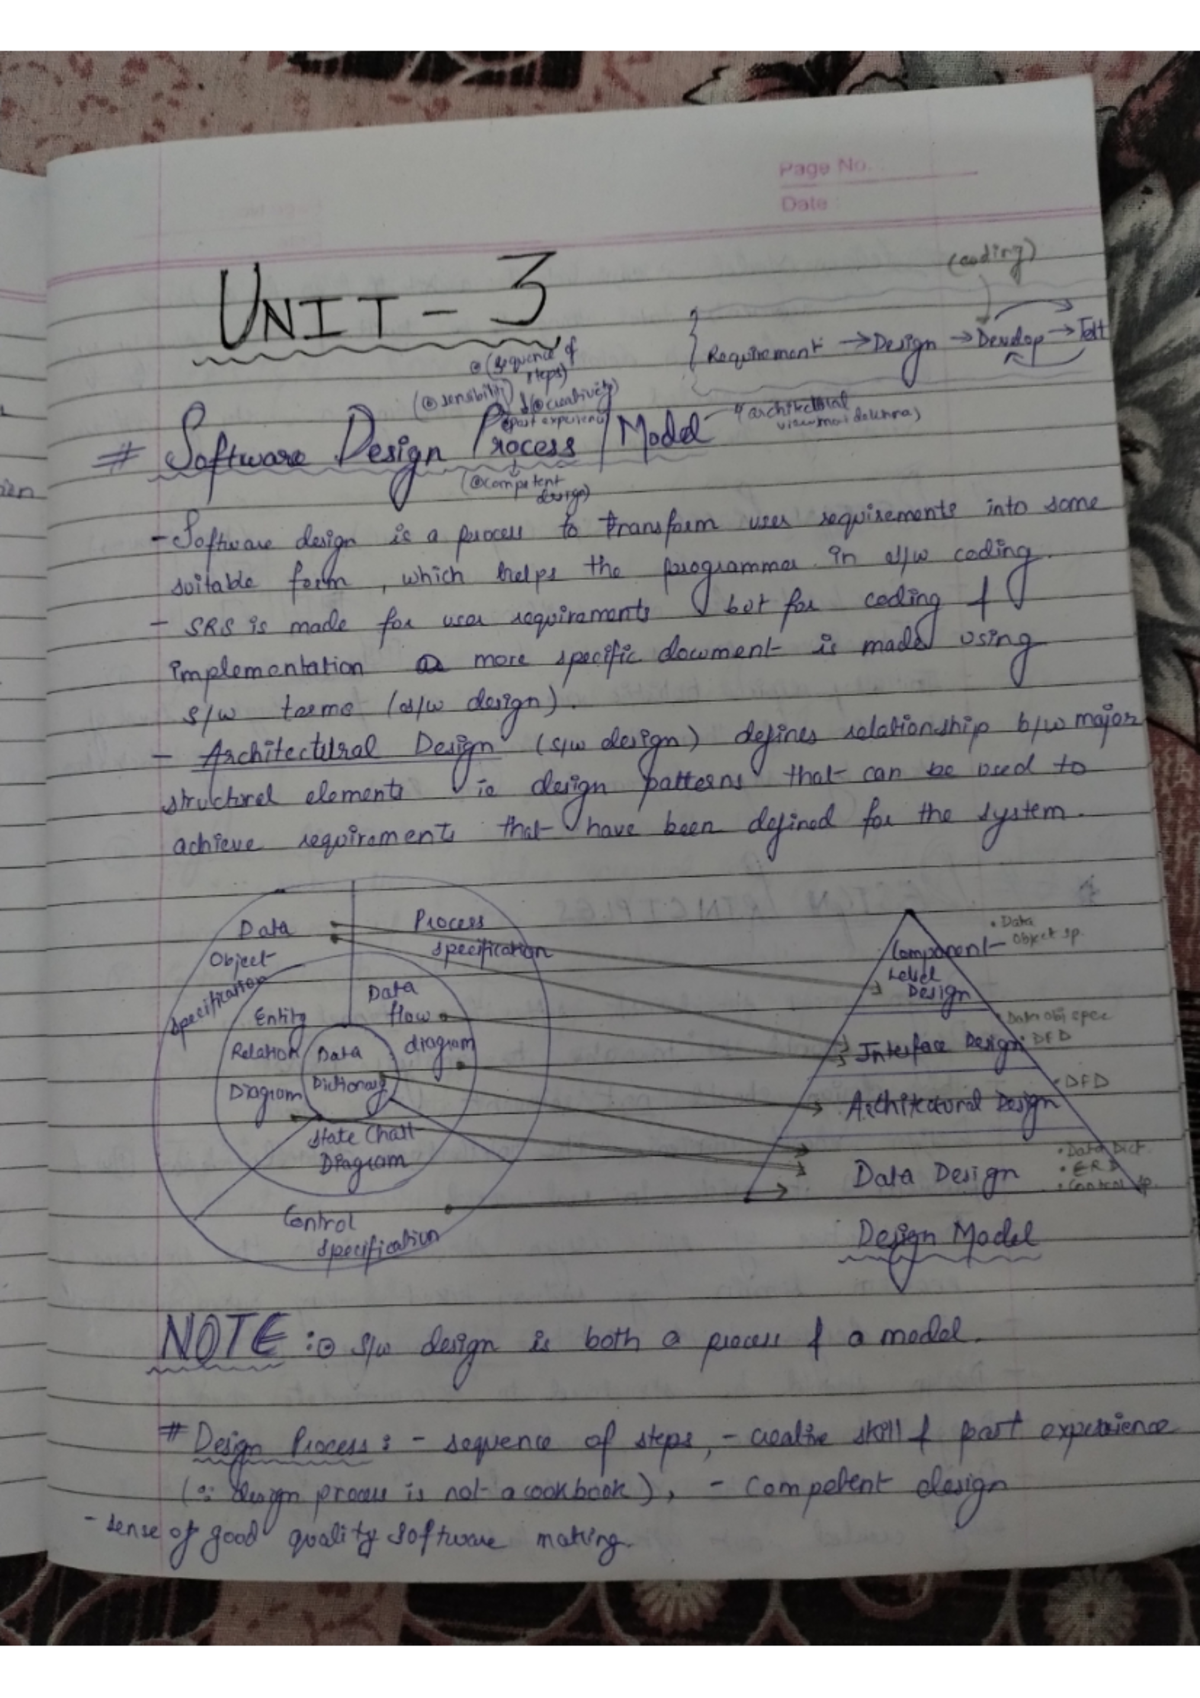 Page No.
Date
(coding)
UNIT - 3
Requirement → Design → Develop → Test
(sequence of
steps)
(sensibility)
creativity
past experience
# Software Design Process / Model
(architectural
(competent
design)
- Software design is a process to transform user requirements into some
suitable form, which helps the programmer in s/w coding.
- SRS is made for user requirements but for coding &
implementation a more specific document is made using
s/w terms (s/w design).
- Architectural Design (s/w design) defines relationship b/w major
structural elements ie design patterns that can be used to
achieve requirements that have been defined for the system.
Data
Object
specification
Process
specification
Entity
Relation
Diagram
Data
flow
diagram
Data
Dictionary
State Chart
Diagram
Control
specification
Component
Level
Design
• Data
Object sp.
Interface Design
• Data obj spec
• DFD
Architectural Design
• DFD
Data Design
• Data Dict.
• E.R.D
• Control sp.
Design Model
NOTE : s/w design is both a process & a model.
# Design Process : - sequence of steps, - creative skill & past experience
(∵ design process is not a cookbook), - competent design
- sense of good quality software making.